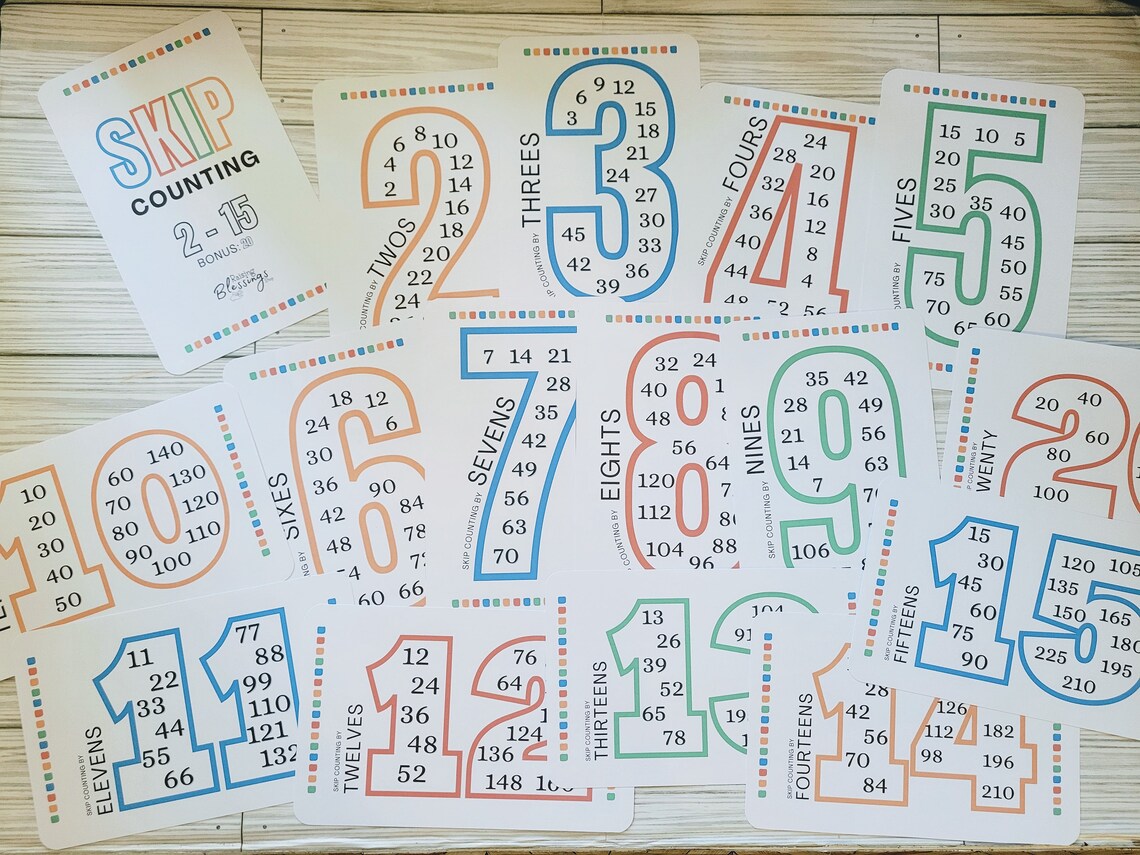 SKIP
COUNTING
2 - 15
BONUS: 20
Blessings
COUNTING BY TWOS
2
4
6
8
10
12
14
16
18
20
22
24
THREES
3
3
6
9
12
15
18
21
24
27
30
33
36
39
42
45
SKIP COUNTING BY FOURS
4
24
28
20
32
16
36
12
40
8
44
4
48
52
56
FIVES
5
15 10 5
20
25
30
35
40
45
50
55
60
65
70
75
10
10
20
30
40
50
60
140
70
130
80
120
90
110
100
SIXES
6
18
12
24
6
30
36
90
42
84
48
78
60
66
SKIP COUNTING BY SEVENS
7
7 14 21
28
35
42
49
56
63
70
EIGHTS
8
32
24
40
48
56
64
120
112
104
96
88
SKIP COUNTING BY NINES
9
35
42
28
49
21
56
14
63
7
106
WENTY
20
40
60
80
100
SKIP COUNTING BY ELEVENS
11
11
22
33
44
55
66
77
88
99
110
121
132
SKIP COUNTING BY TWELVES
12
12
24
36
48
52
76
64
124
136
148
SKIP COUNTING BY THIRTEENS
13
13
26
39
52
65
78
104
91
SKIP COUNTING BY FOURTEENS
14
28
42
56
70
84
126
112
98
182
196
210
SKIP COUNTING BY FIFTEENS
15
15
30
45
60
75
90
120 105
135
150
165
180
195
210
225